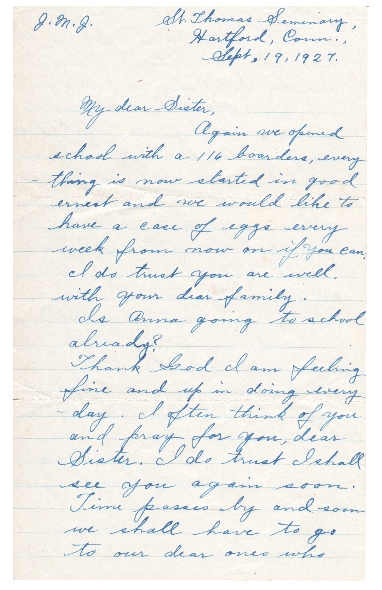 J. M. J.
St. Thomas Seminary,
Hartford, Conn.,
Sept. 19, 1927.
My dear Sister,
Again we opened
school with a 116 boarders, every
thing is now started in good
ernest and we would like to
have a case of eggs every
week from now on if you can.
I do trust you are well.
with your dear family.
Is Anna going to school
already?
Thank God I am feeling
fine and up in doing every
day. I often think of you
and pray for you, dear
Sister. I do trust I shall
see you again soon.
Time passes by and soon
we shall have to go
to our dear ones who